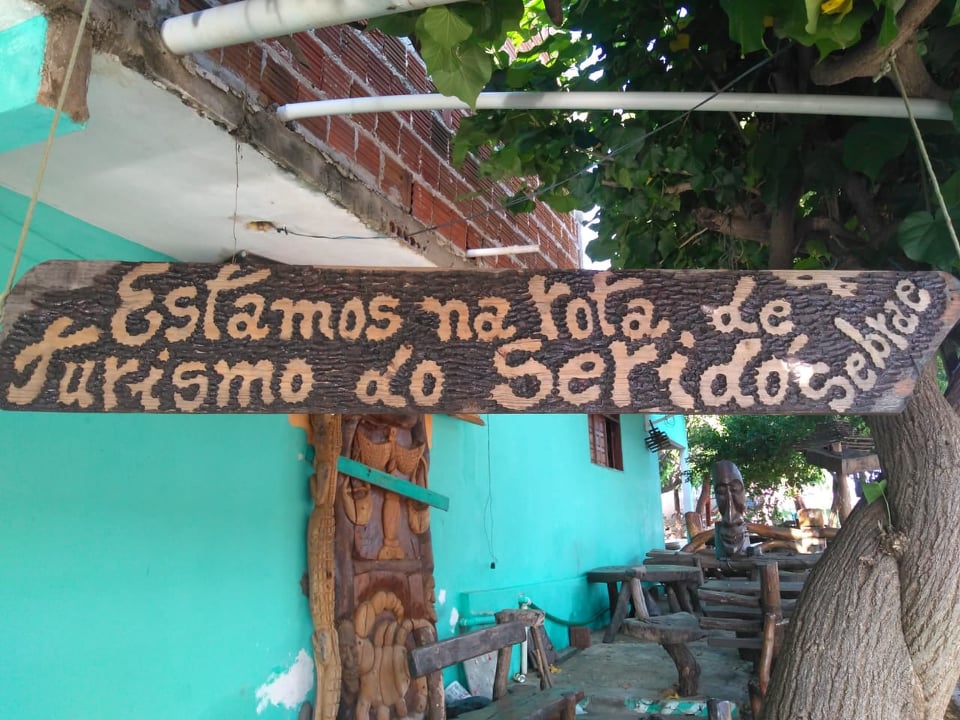 Estamos na rota de
Turismo do Seridó
Sebrae